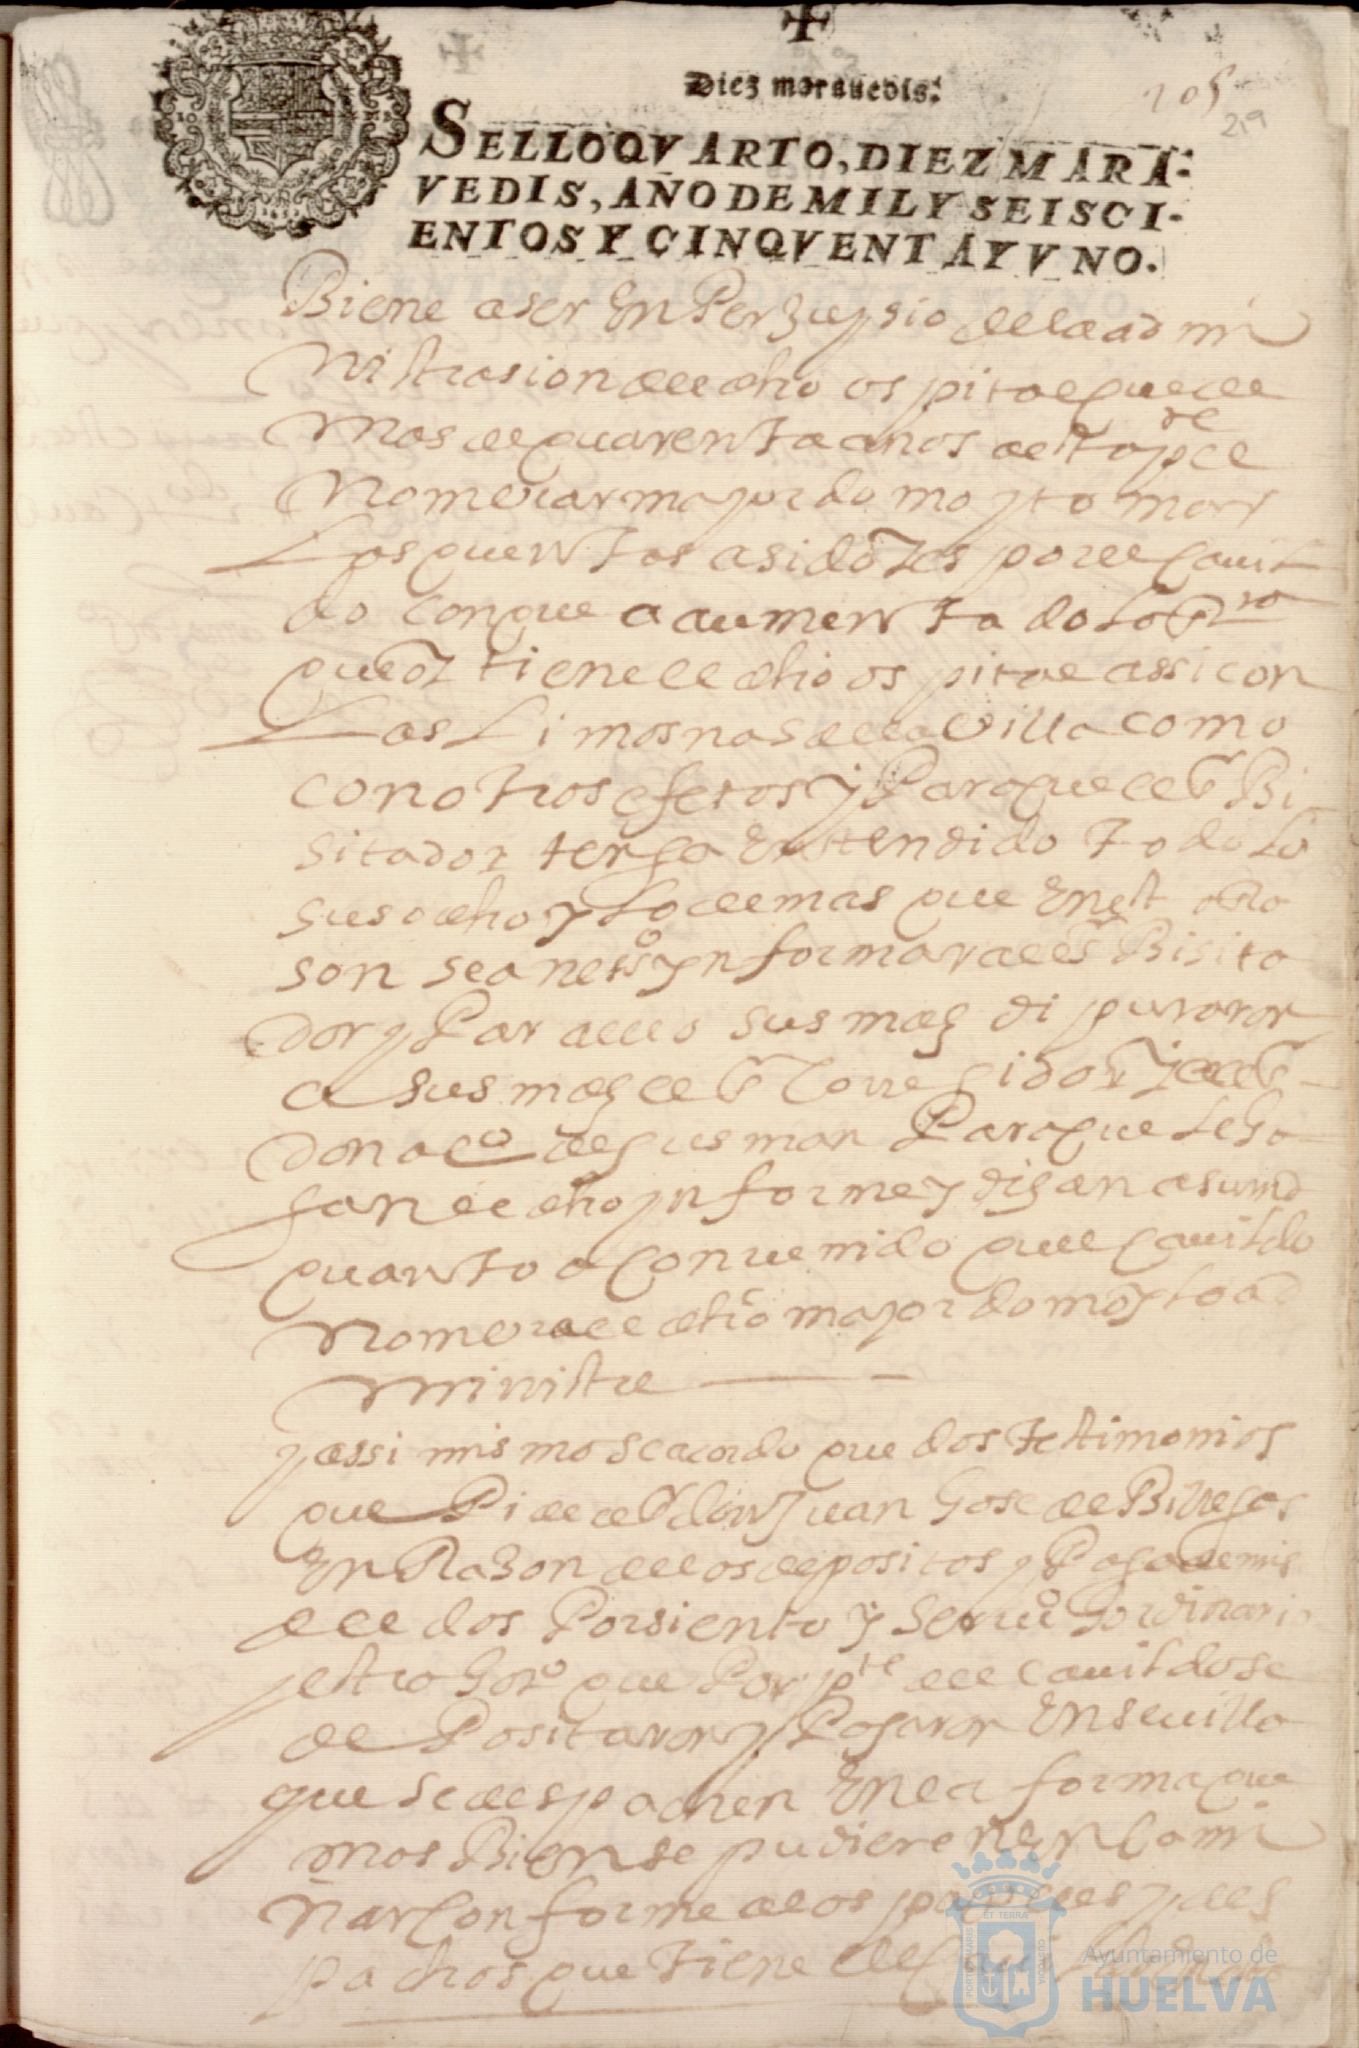 Diez marauedis.
105
219
SELLOQVARTO, DIEZ MARA-
VEDIS, AÑO DE MIL Y SEISCI-
ENTOS Y CINQVENTA Y VNO.
Biene a ser En Perjuysio de la admi
nistrasion del dho ospital que de
mas de quarenta años a esta pte
nombrar mayordomo y tomar
Las quentas a sido es por el cauil
do con que a aumentado Lo
que oy tiene el dho ospital assi con
Las Limosnas de la villa como
con otros efetos y Para que el Sr Bi
sitador tenga Entendido todo Lo
susodho y Lo demas que En
son sea neto ynformar al Sr Bisita
dor y Para ello sus mds diputaron
a sus mds el Sr Corregidor y el Sr
don al° de gusman Para que Le ha
gan el dho ynforme y digan a su md
quanto a conuenido que el cauildo
nombra el dho mayordomo y Lo ad
ministre
y assi mismo se acordo que dos testimonios
que Pide el Sr don Juan Jose de Billegas
En Razon de los depositos y Paga de mis
del dos Por siento y seruio hordinario
y estrahor° que Por pte del cauildo se
depositaron y Pagaron En seuilla
que se despachen En la forma que
mas Bien se pudieren Encami
ñar conforme a los papeles y des
pachos que tiene el
PORTUS MARIS ET TERRAE CUSTODIA
Ayuntamiento de
HUELVA